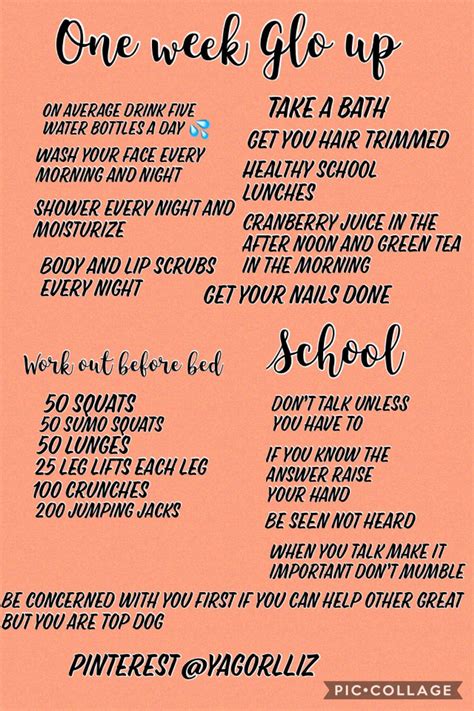 One week Glo up
ON AVERAGE DRINK FIVE
WATER BOTTLES A DAY 💦
WASH YOUR FACE EVERY
MORNING AND NIGHT
SHOWER EVERY NIGHT AND
MOISTURIZE
BODY AND LIP SCRUBS
EVERY NIGHT
TAKE A BATH
GET YOU HAIR TRIMMED
HEALTHY SCHOOL
LUNCHES
CRANBERRY JUICE IN THE
AFTER NOON AND GREEN TEA
IN THE MORNING
GET YOUR NAILS DONE
Work out before bed
50 SQUATS
50 SUMO SQUATS
50 LUNGES
25 LEG LIFTS EACH LEG
100 CRUNCHES
200 JUMPING JACKS
School
DON'T TALK UNLESS
YOU HAVE TO
IF YOU KNOW THE
ANSWER RAISE
YOUR HAND
BE SEEN NOT HEARD
WHEN YOU TALK MAKE IT
IMPORTANT DON'T MUMBLE
BE CONCERNED WITH YOU FIRST IF YOU CAN HELP OTHER GREAT
BUT YOU ARE TOP DOG
PINTEREST @YAGORLLIZ
PIC•COLLAGE